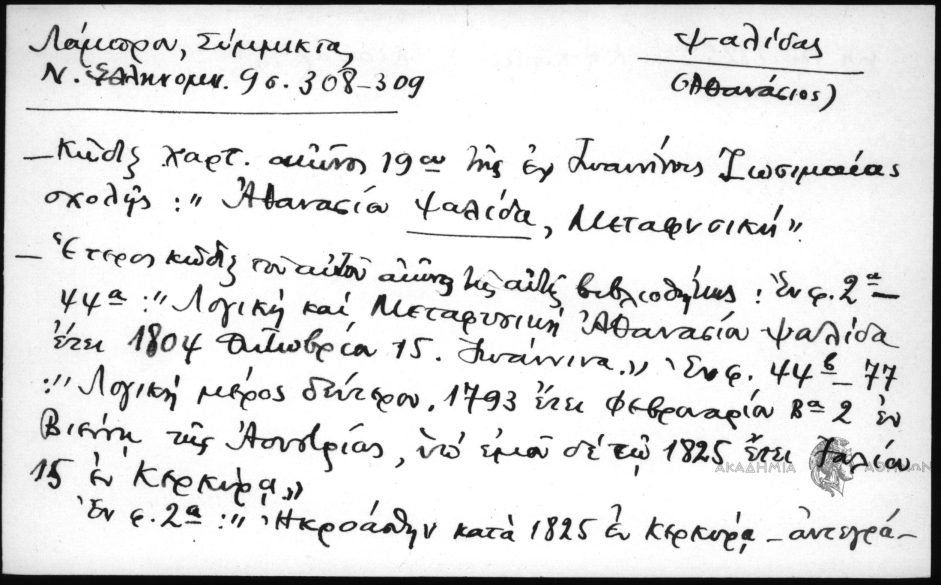 Λάμπρου, Σύμμικτα,
Ν. Ἑλληνομν. 9 σ. 308-309
Ψαλίδας
(Ἀθανάσιος)
— Κῶδιξ χαρτ. αἰῶνος 19ου τῆς ἐν Ἰωαννίνοις Ζωσιμαίας
σχολῆς : " Ἀθανασίου Ψαλίδα, Μεταφυσική".
— Ἕτερος κῶδιξ τοῦ αὐτοῦ αἰῶνος τῆς αὐτῆς βιβλιοθήκης : Ἐν φ. 2α—
44α : " Λογική καί Μεταφυσική Ἀθανασίου Ψαλίδα
ἔτει 1804 Ὀκτωβρίου 15. Ἰωάννινα." Ἐν φ. 44β — 77
: " Λογική μέρος δεύτερον. 1793 ἔτει Φεβρουαρίου 2 ἐν
Βιέννῃ τῆς Ἀουστρίας, ὑπ' ἐμοῦ δέ τῷ 1825 ἔτει Ἰουλίου
15 ἐν Κερκύρᾳ"
Ἐν φ. 2α : " Ἠκροάσθην κατὰ 1825 ἐν Κερκύρᾳ — ἀντεγρά-
ΑΚΑΔΗΜΙΑ ΑΘΗΝΩΝ